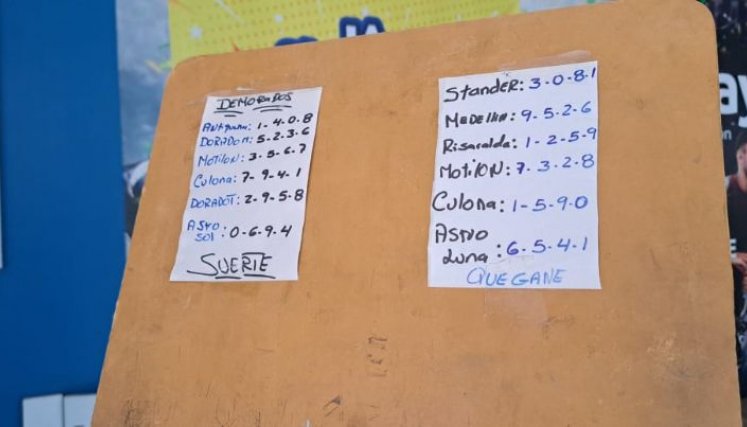 DEMORADOS
Antioqueña: 1-4-0-8
DORADO M: 5-2-3-6
MOTILON: 3-5-6-7
Culona: 7-9-4-1
DORADO T: 2-9-5-8
ASTRO
SOL: 0-6-9-4
SUERTE
StandeR: 3-0-8-1
Medellin: 9-5-2-6
Risaralda: 1-2-5-9
MotiloN: 7-3-2-8
Culona: 1-5-9-0
Astro
Luna: 6-5-4-1
QUE GANE